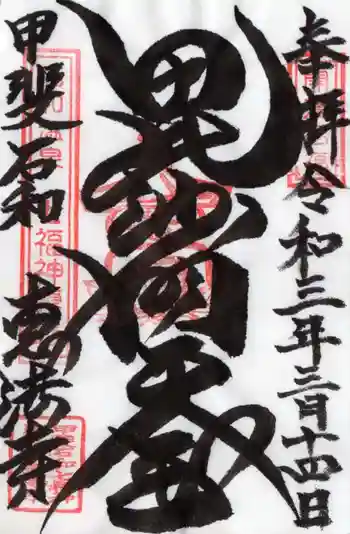 奉拝 令和三年三月十四日
毘沙門天王
甲斐石和 恵法寺